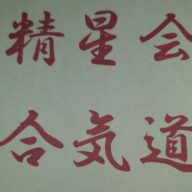 精星会
合気道